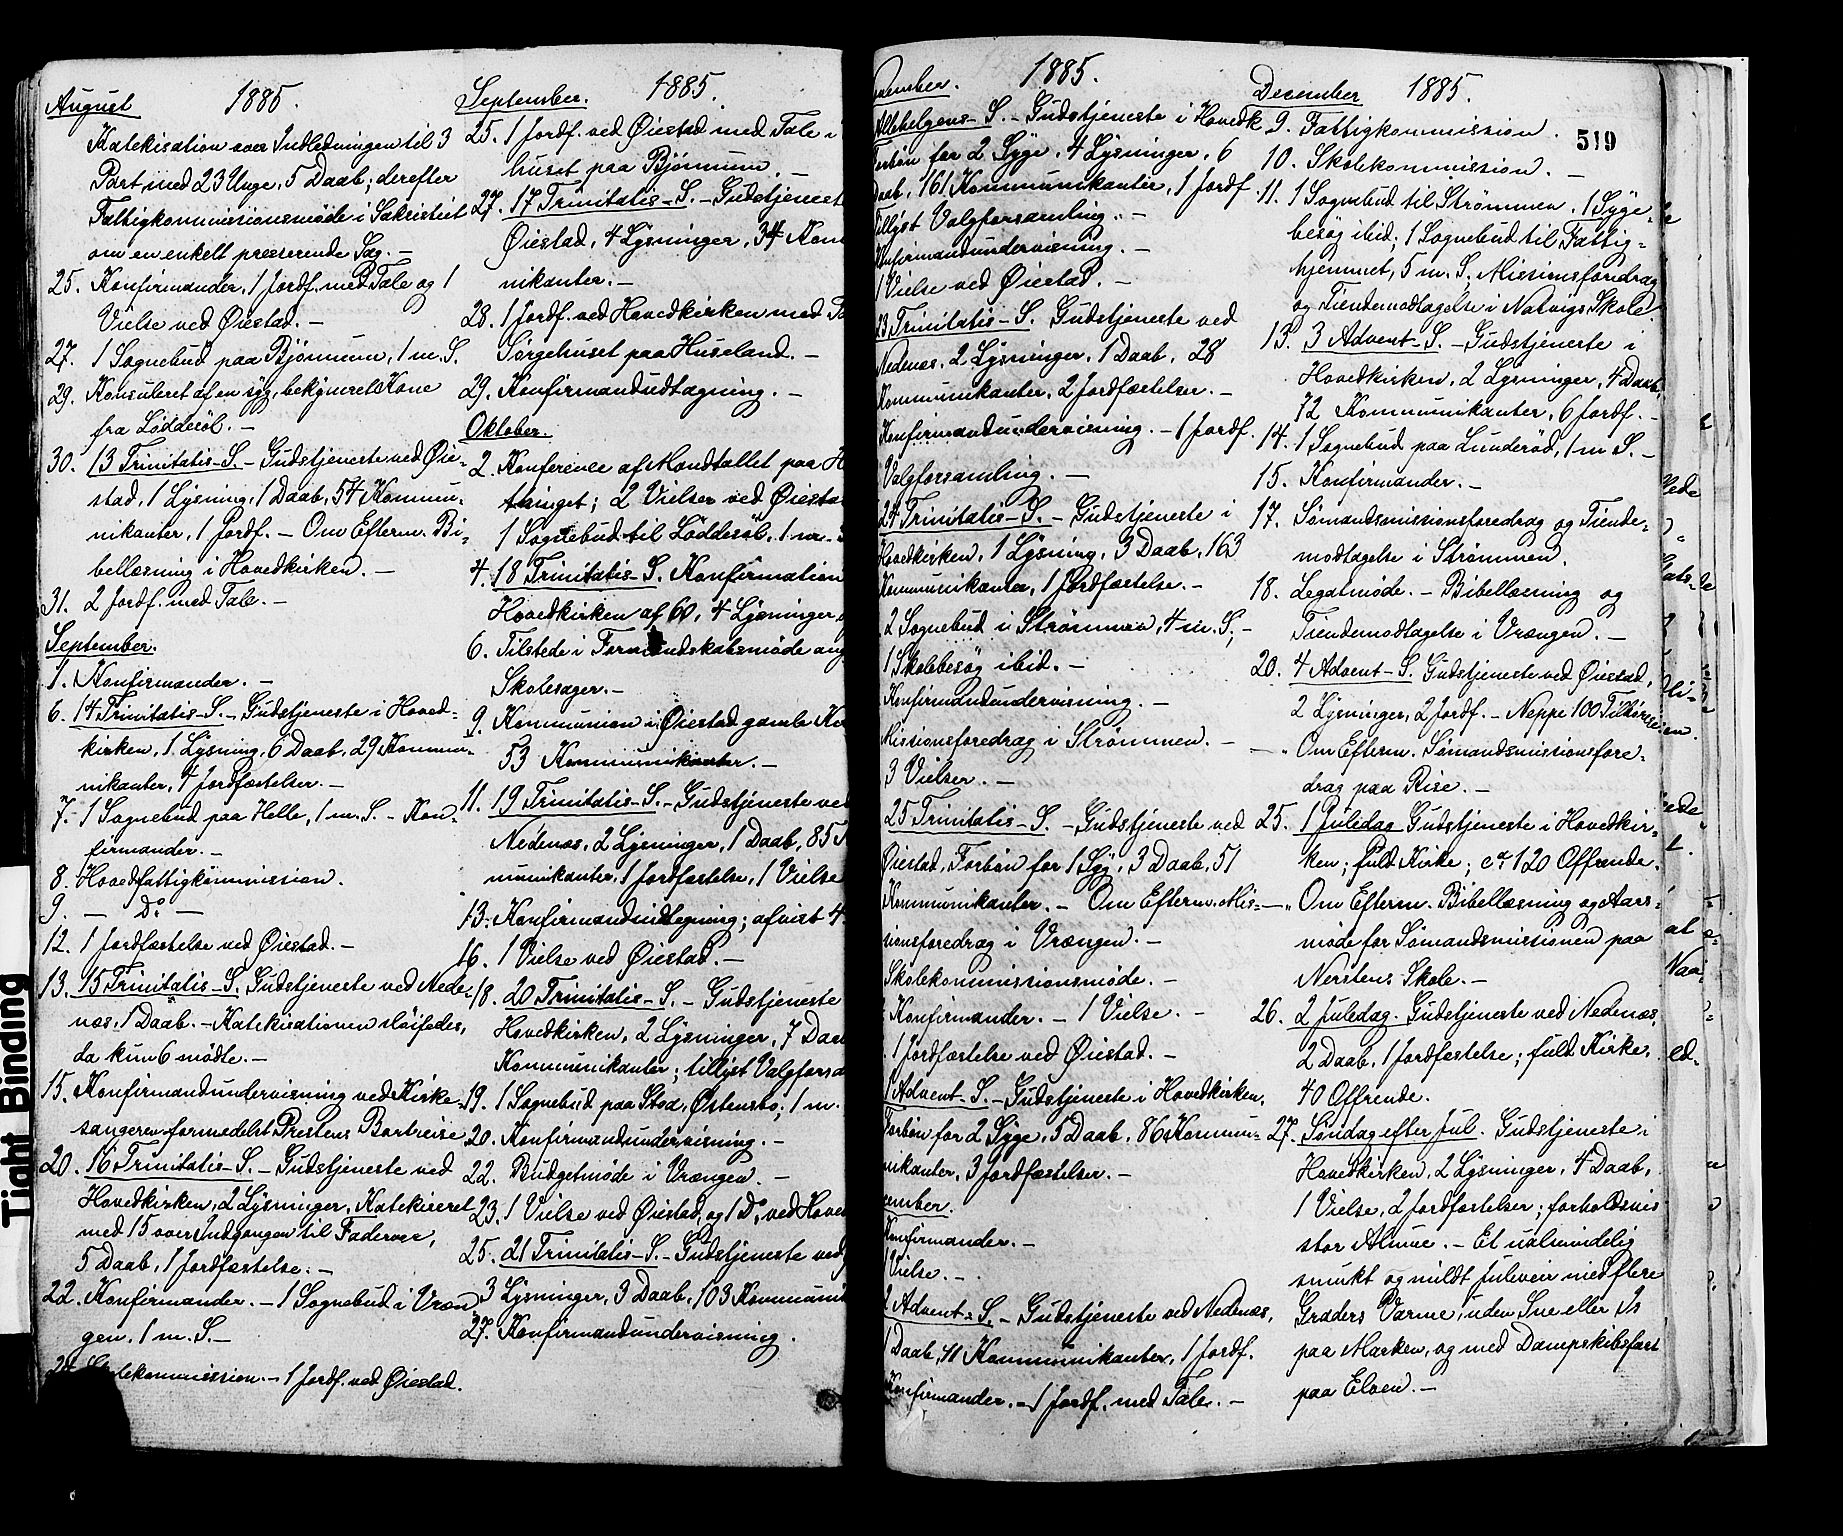 August 1885.
Katekisation over Indledningen til 3
Part med 23 Unge, 5 Daab; derefter
Fattigkommissionsmøde i Sakristiet
om en enkelt presserende Sag. —
25. Konfirmander, 1 Jordf. med Tale og 1
Vielse ved Øiestad. —
27. 1 Sognebud paa Bjønnum, 1 m. S.
29. Konsuleret af en syg, bekymret Kone
fra Løddesøl. —
30. 13 Trinitatis-S. — Gudstjeneste ved Øie-
stad, 1 Lysning, 1 Daab, 54 Kommu-
nikanter, 1 Jordf. — Om Efterm. Bi-
bellæsning i Hovedkirken. —
31. 2 Jordf. med Tale. —
September.
1. Konfirmander. —
6. 14 Trinitatis-S. — Gudstjeneste i Hoved-
kirken, 1 Lysning, 6 Daab, 29 Kommu-
nikanter, 4 Jordfæstelser. —
7. 1 Sognebud paa Helle, 1 m. S. — Kon-
firmander. —
8. Hovedfattigkommission.
9. — Do —
12. 1 Jordfæstelse ved Øiestad. —
13. 15 Trinitatis-S. Gudstjeneste ved Nede-
næs, 1 Daab. — Katekisationen sløifedes,
da kun 6 mødte. —
15. Konfirmandundervisning ved Kirke-
sangeren formedelst Prestens Bortreise
20. 16 Trinitatis-S. — Gudstjeneste ved
Hovedkirken, 2 Lysninger, Katekiseret
med 15 over Indgangen til Fadervor,
5 Daab, 1 Jordfæstelse. —
22. Konfirmander. — 1 Sognebud i Vræn-
gen, 1 m. S. —
24. Skolekommission. — 1 Jordf. ved Øiestad.
September. 1885.
25. 1 Jordf. ved Øiestad med Tale i
huset paa Bjønnum. —
27. 17 Trinitatis-S. — Gudstjenest
Øiestad, 4 Lysninger, 34 Kom
nikanter. —
28. 1 Jordf. ved Hovedkirken med
Sørgehuset paa Huseland. —
29. Konfirmandudtagning. —
Oktober.
2. Konference af Mandtallet paa
tinget; 2 Vielser ved Øiesta
1 Sognebud til Løddesøl, 1 m.
4. 18 Trinitatis-S. Konfirmation
Hovedkirken af 60, 4 Lysninger
6. Tilstede i Formandskabsmøde ang
Skolesager. —
9. Kommunion i Øiestad gamle
53 Kommunikanter. —
11. 19 Trinitatis-S. — Gudstjeneste ve
Nedenæs, 2 Lysninger, 1 Daab, 85
munikanter, 1 Jordfæstelse, 1 Vielse
13. Konfirmandindtegning; afvist 4
16. 1 Vielse ved Øiestad. —
18. 20 Trinitatis-S. — Gudstjeneste
Hovedkirken, 2 Lysninger, 7 Daa
Kommunikanter; tillyst Valgforsa
19. 1 Sognebud paa Stod, Østensbo; 1 m.
20. Konfirmandundervisning. —
22. Budgetmøde i Vrængen. —
23. 1 Vielse ved Øiestad, og 1 Do ved Hove
25. 21 Trinitatis-S. — Gudstjeneste ved
3 Lysninger, 3 Daab, 103 Kommuni
27. Konfirmandundervisning.
vember. 1885.
Allehelgens-S. — Gudstjeneste i Hovedk
Forbøn for 2 Syge, 4 Lysninger, 6
Daab, 161 Kommunikanter, 1 Jordf.
Tillyst Valgforsamling. —
Konfirmandundervisning. —
1 Vielse ved Øiestad. —
23 Trinitatis-S. Gudstjeneste ved
Nedenæs, 2 Lysninger, 1 Daab, 28
Kommunikanter, 2 Jordfæstelser. —
Konfirmandundervisning. — 1 Jordf.
Valgforsamling. —
24 Trinitatis-S. — Gudstjeneste i
Hovedkirken, 1 Lysning, 3 Daab, 163
Kommunikanter, 1 Jordfæstelse. —
2 Sognebud i Strømmen, 4 m. S; —
1 Skolebesøg ibid. —
Konfirmandundervisning. —
Missionsforedrag i Strømmen. —
3 Vielser. —
25 Trinitatis-S. — Gudstjeneste ved
Øiestad, Forbøn for 1 Syg, 3 Daab, 51
Kommunikanter. — Om Efterm. Mis-
sionsforedrag i Vrængen. —
Skolekommissionsmøde. —
Konfirmander. — 1 Vielse. —
1 Jordfæstelse ved Øiestad. —
1 Advent-S. — Gudstjeneste i Hovedkirken,
Forbøn for 2 Syge, 5 Daab, 86 Kommu-
nikanter, 3 Jordfæstelser. —
cember.
Konfirmander. —
Vielse. —
2 Advent-S. — Gudstjeneste ved Nedenæs,
1 Daab, 41 Kommunikanter, 1 Jordf.
Konfirmander. — 1 Jordf. med Tale. —
December 1885.
519
9. Fattigkommission.
10. Skolekommission. —
11. 1 Sognebud til Strømmen, 1 Syge-
besøg ibid; 1 Sognebud til Fattig-
hjemmet, 5 m. S. Missionsforedrag
og Tiendemodtagelse i Natvigs Skole
13. 3 Advent-S. — Gudstjeneste i
Hovedkirken, 2 Lysninger, 4 Daab,
72 Kommunikanter, 6 Jordf. —
14. 1 Sognebud paa Lunderød, 1 m S. —
15. Konfirmander. —
17. Sømandsmissionsforedrag og Tiende-
modtagelse i Strømmen.
18. Legatmøde. — Bibellæsning og
Tiendemodtagelse i Vrængen. —
20. 4 Advent-S. Gudstjeneste ved Øiestad,
2 Lysninger, 2 Jordf. — Neppe 100 Tilhørere
— " Om Efterm. Sømandsmissionsfore-
drag paa Rise. —
25. 1 Juledag Gudstjeneste i Hovedkir-
ken; fuld Kirke; ca. 120 Offrende.
— " Om Efterm. Bibellæsning og Aars-
møde for Sømandsmissionen paa
Nerstens Skole. —
26. 2 Juledag. Gudstjeneste ved Nedenæs,
2 Daab, 1 Jordfæstelse; fuld Kirke,
40 Offrende.
27. Søndag efter Jul. Gudstjeneste i
Hovedkirken, 2 Lysninger, 4 Daab,
1 Vielse, 2 Jordfæstelser; forholdsvis
stor Almue. — Et ualmindelig
smukt og mildt Juleveir med flere
Graders Varme, uden Sne eller Is
paa Marken, og med Dampskibsfart
paa Elven. —
Tight Binding